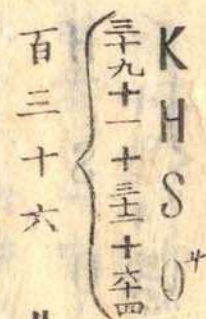 KHSO⁴
三十九+一+三十二+六十四
百三十六